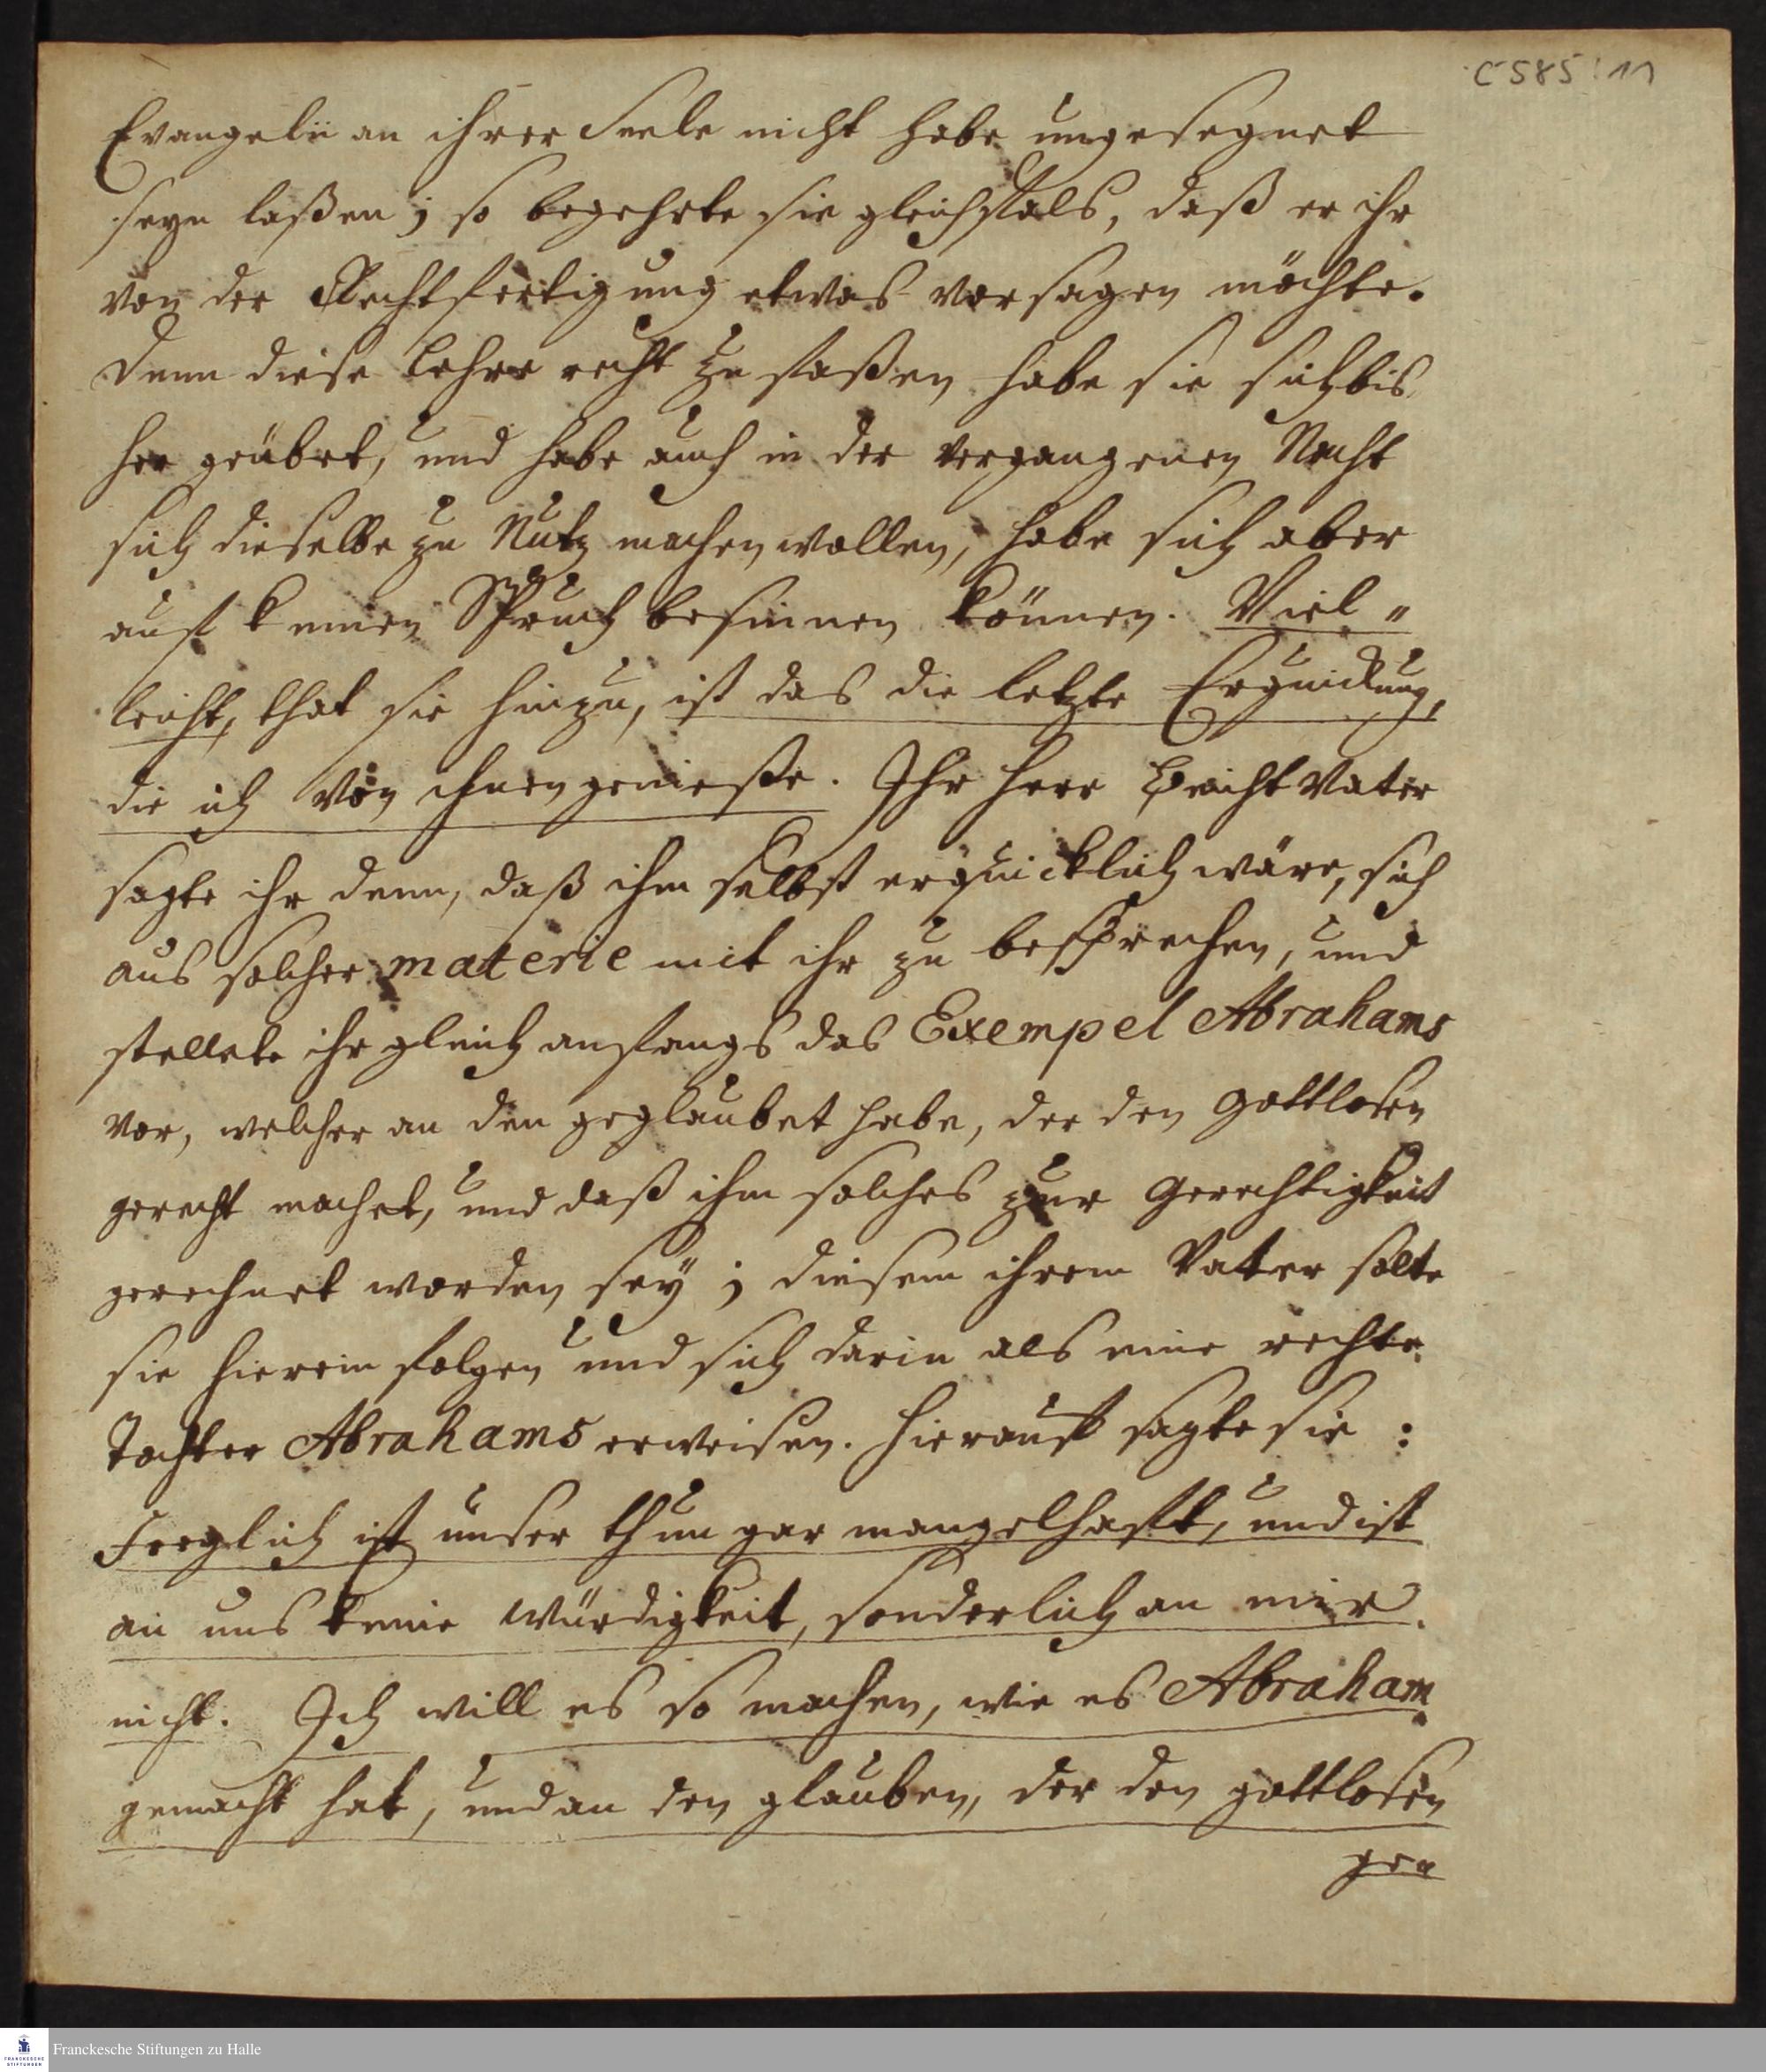 C 585:11
Evangelii an ihrer Seele nicht habe ungesegnet
seyn laßen; so begehrte sie gleichfals, daß er ihr
von der Rechtfertigung etwas vorsagen möchte.
Denn diese Lehre recht zu faßen habe sie sich bis
her geübet, und habe auch in der vergangenen Nacht
sich dieselbe zu Nutz machen wollen, habe sich aber
auf keinen Spruch besinnen können. Viel„
leicht, that sie hinzu, ist das die letzte Erquickung,
die ich von ihnen genieße. Ihr Herr BeichtVater
sagte ihr denn, daß ihm selbst erquicklich wäre, sich
aus solcher materie mit ihr zu besprechen, und
stellete ihr gleich anfangs das Exempel Abrahams
vor, welcher an den geglaubet habe, der den Gottlosen
gerecht machet, und daß ihm solches zur Gerechtigkeit
gerechnet worden seÿ; diesem ihrem Vater solte
sie hierein folgen und sich darin als eine rechte
Tochter Abrahams erweisen. Hierauf sagte sie:
Freylich ist unser thun gar mangelhafft, und ist
an uns keine Würdigkeit, sonderlich an mir
nicht. Ich will es so machen, wie es Abraham
gemacht hat, und an den glauben, der den gottlosen
ge¬
Franckesche Stiftungen zu Halle